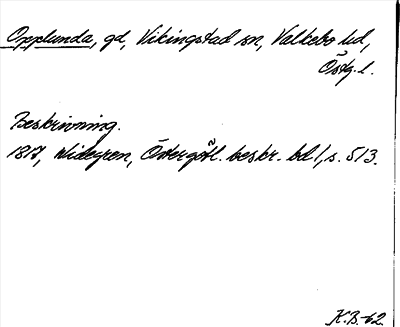 Opplunda, gd, Vikingstad sn, Valkebo hd,
Östg. l.
Beskrivning.
1817, Widegren, Östergötl. beskr. bd 1, s. 513.
K.B.-62.